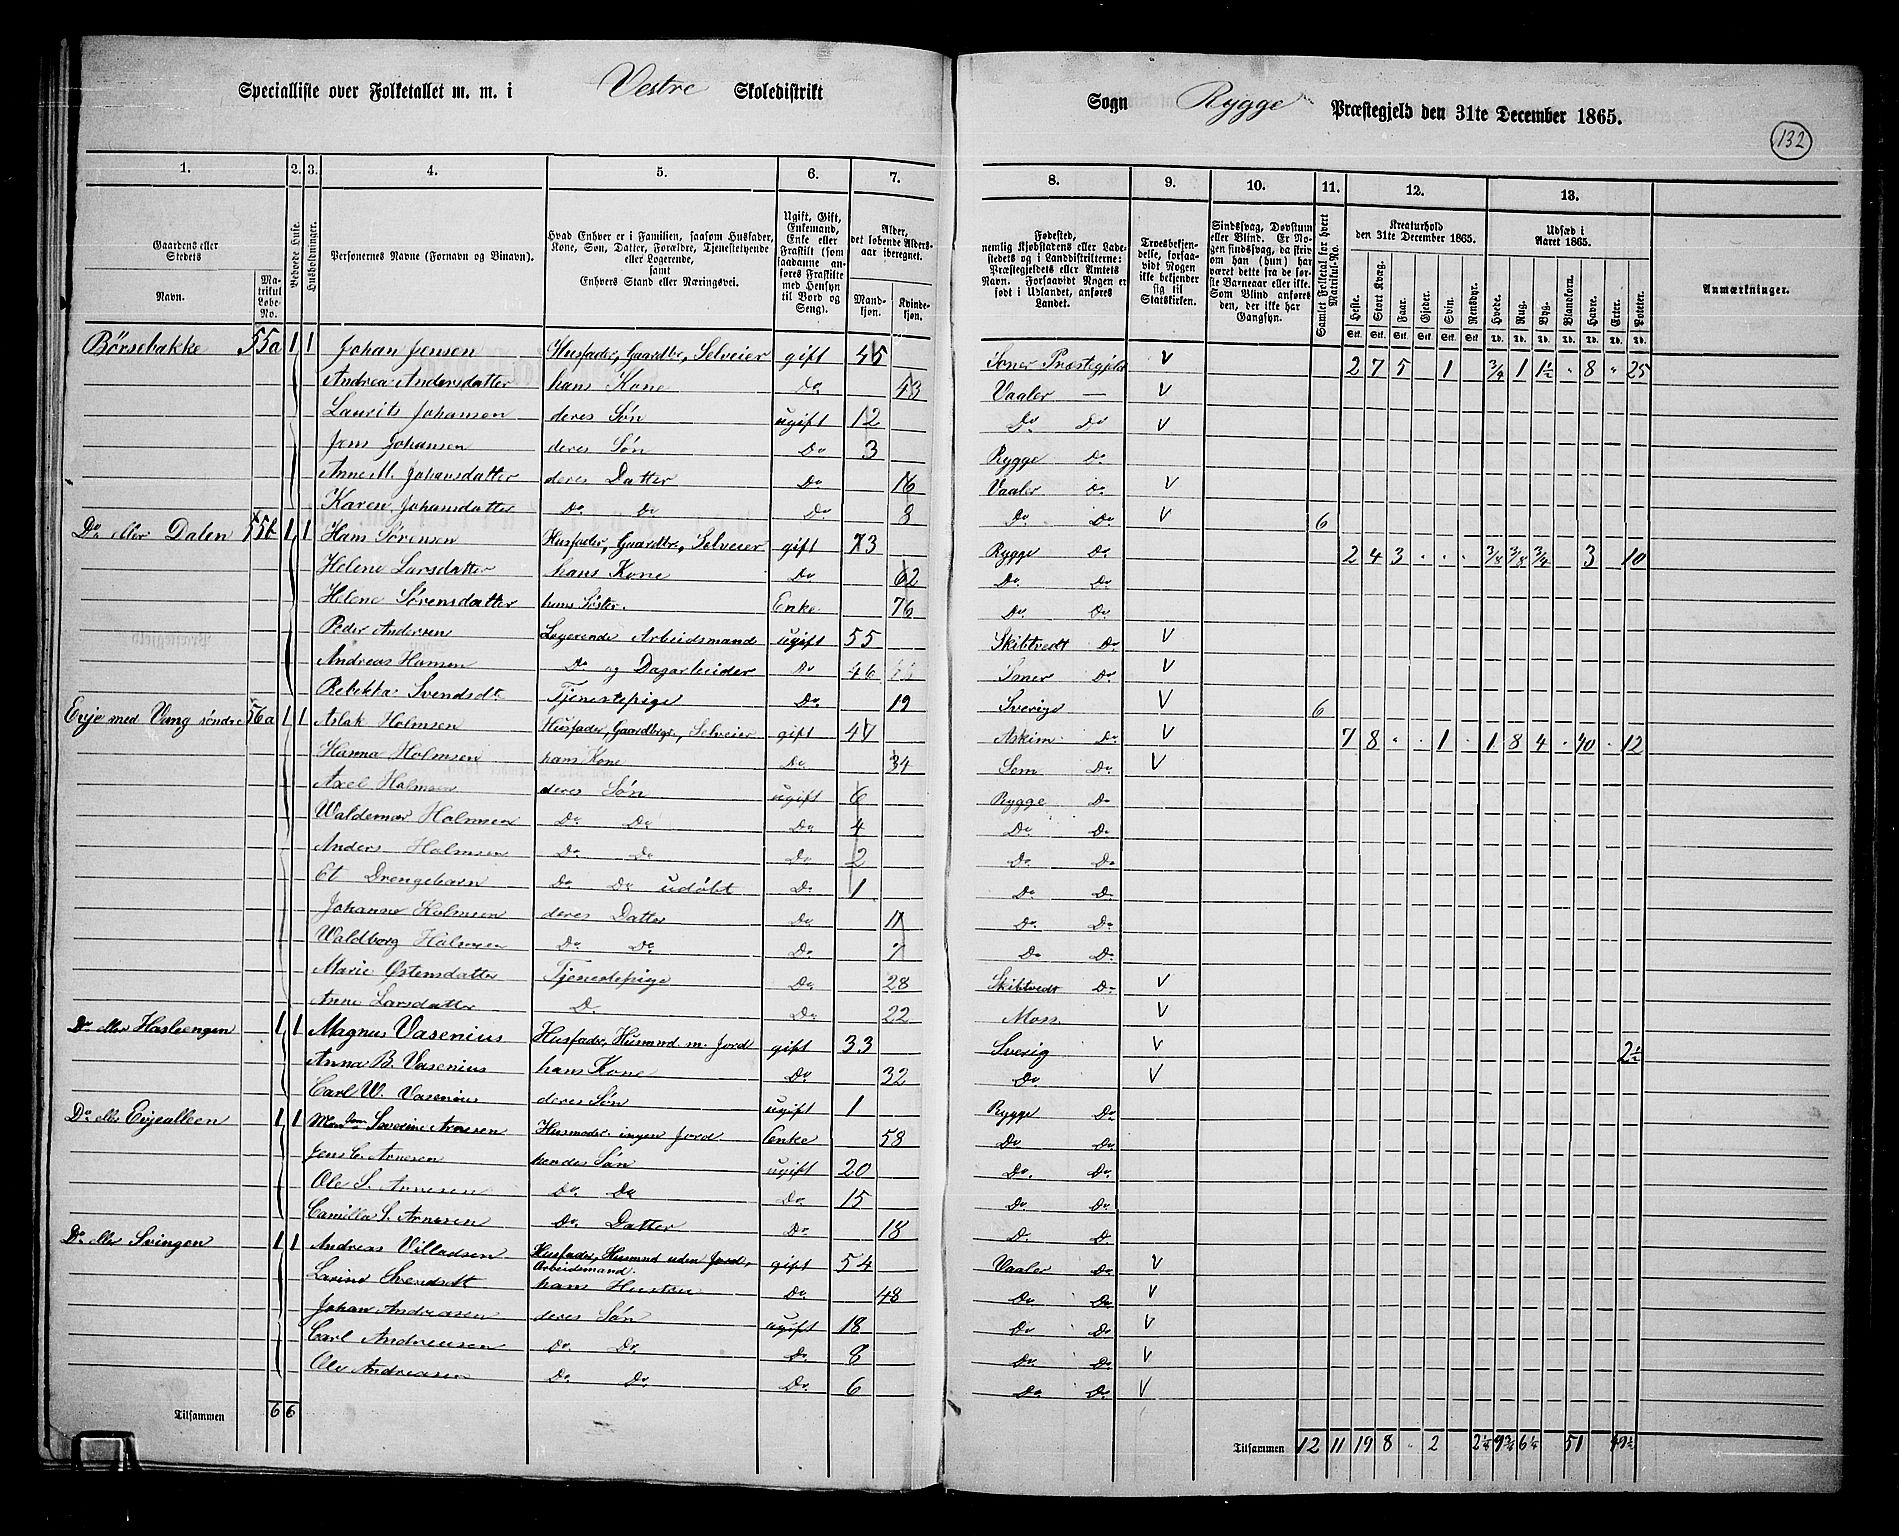 Specialliste over Folketallet m. m. i Vestre Skoledistrikt
Sogn Rygge Præstegjeld den 31te December 1865.
132
1. 2. 3. 4. 5. 6. 7. 8. 9. 10. 11. 12. 13.
Gaardens eller Stedets Navn.
Matrikul Løbe-No.
Beboede Huse.
Husholdninger.
Personernes Navne (Fornavn og Binavn).
Hvad Enhver er i Familien, saasom Husfader, Kone, Søn, Datter, Forældre, Tjenestetyende eller Logerende, samt Enhvers Stand eller Næringsvei.
Ugift, Gift, Enkemand, Enke eller Fraskilt (som saadanne anføres Fraskilte med Hensyn til Bord og Seng).
Alder, det løbende Aldersaar iberegnet.
Mandkjøn. Kvindekjøn.
Fødested, nemlig Kjøbstadens eller Ladestedets og i Landdistrikterne: Præstegjeldets eller Amtets Navn. Forsaavidt Nogen er født i Udlandet, anføres Landet.
Troesbekjendelse, forsaavidt Nogen ikke bekjender sig til Statskirken.
Sindssvag, Døvstum eller Blind. Er Nogen sindssvag, da skrives om han (hun) har været dette fra de første Barneaar eller ikke. Som Blind anføres den, der ikke har Gangsyn.
Samlet Folketal for hvert Matrikul-No.
Kreaturhold den 31te December 1865.
Heste. Stort Kvæg. Faar. Gjeder. Svin. Rensdyr.
Udsæd i Aaret 1865.
Hvede. Rug. Byg. Blandkorn. Havre. Erter. Poteter.
Anmærkninger.
Børsebakke 55a 1 1 Johan Jensen Husfader, Gaardbr., Selveier gift 45 Soner Præstegjeld V 2 7 5 1 3/4 1 1½ 8 25
Andrea Andersdatter hans Kone Do 43 Vaaler — V
Laurits Johansen deres Søn ugift 12 Do Do V
Jens Johansen deres Søn Do 3 Rygge Do
Anne M. Johansdatter deres Datter Do 16 Vaaler Do V
Karen Johansdatter Do Do Do 8 Do Do V 6
Do eller Dalen 55b 1 1 Hans Sørensen Husfader, Gaardbr., Selveier gift 73 Rygge Do 2 4 3 3/8 3/8 3/4 3 10
Helene Larsdatter hans Kone Do 62 Do Do
Helene Sørensdatter hans Søster. Enke 76 Do Do
Peder Andersen Logerende Arbeidsmand ugift 55 Skibtvedt Do V
Andreas Hansen Do og Dagarbeider Do 46 Soner Do V
Rebekka Svendsdt. Tjenestepige Do 19 Sverige V 6
Evje med Vang søndre 56a 1 1 Aslak Holmsen Husfader, Gaardbrgr., Selveier gift 41 Askim Do V 7 8 1 1 8 4 40 12
Hanna Holmsen hans Kone Do 34 Sem Do V
Axel Holmsen deres Søn ugift 6 Rygge Do
Waldemar Holmsen Do Do Do 4 Do Do
Anders Holmsen Do Do Do 2 Do Do
Et Drengebarn Do Do udøbt Do 1 Do Do
Johanne Holmsen deres Datter Do 11 Do Do
Waldborg Holmsen Do Do Do 7 Do Do
Marie Østensdatter Tjenestepige Do 28 Skibtvedt Do V
Anne Larsdatter D. Do 22 Moss. V
Do eller Hasleengen 1 1 Magnus Vasenius Husfader, Husmd. m. Jord gift 33 Sverig V 2½
Anna B. Vasenius hans Kone Do 32 Do V
Carl W. Vasenius deres Søn ugift 1 Rygge Do
Do eller Evjealleen 1 1 Severine Arnesen Husmoder. ingen Jord Enke 58 Do Do
Jens C. Arnesen hendes Søn ugift 20 Do Do
Ole S. Arnesen Do Do Do 15 Do Do
Camilla S. Arnesen Do Datter Do 18 Do Do
Do eller Svingen 1 1 Andreas Villadsen Husfader, Husmnd uden Jord, Arbeidsmand. gift 54 Vaaler Do V
Larine Svendsdt hans Hustru Do 48 Do Do V
Johan Andreasen deres Søn ugift 18 Do Do V
Carl Andreasen Do Do Do 8 Do Do V
Ole Andreasen Do Do Do 6 Do Do V
Tilsammen 6 6
Tilsammen 12 11 19 8 2 2¼ 9¾ 6¼ 51 49½